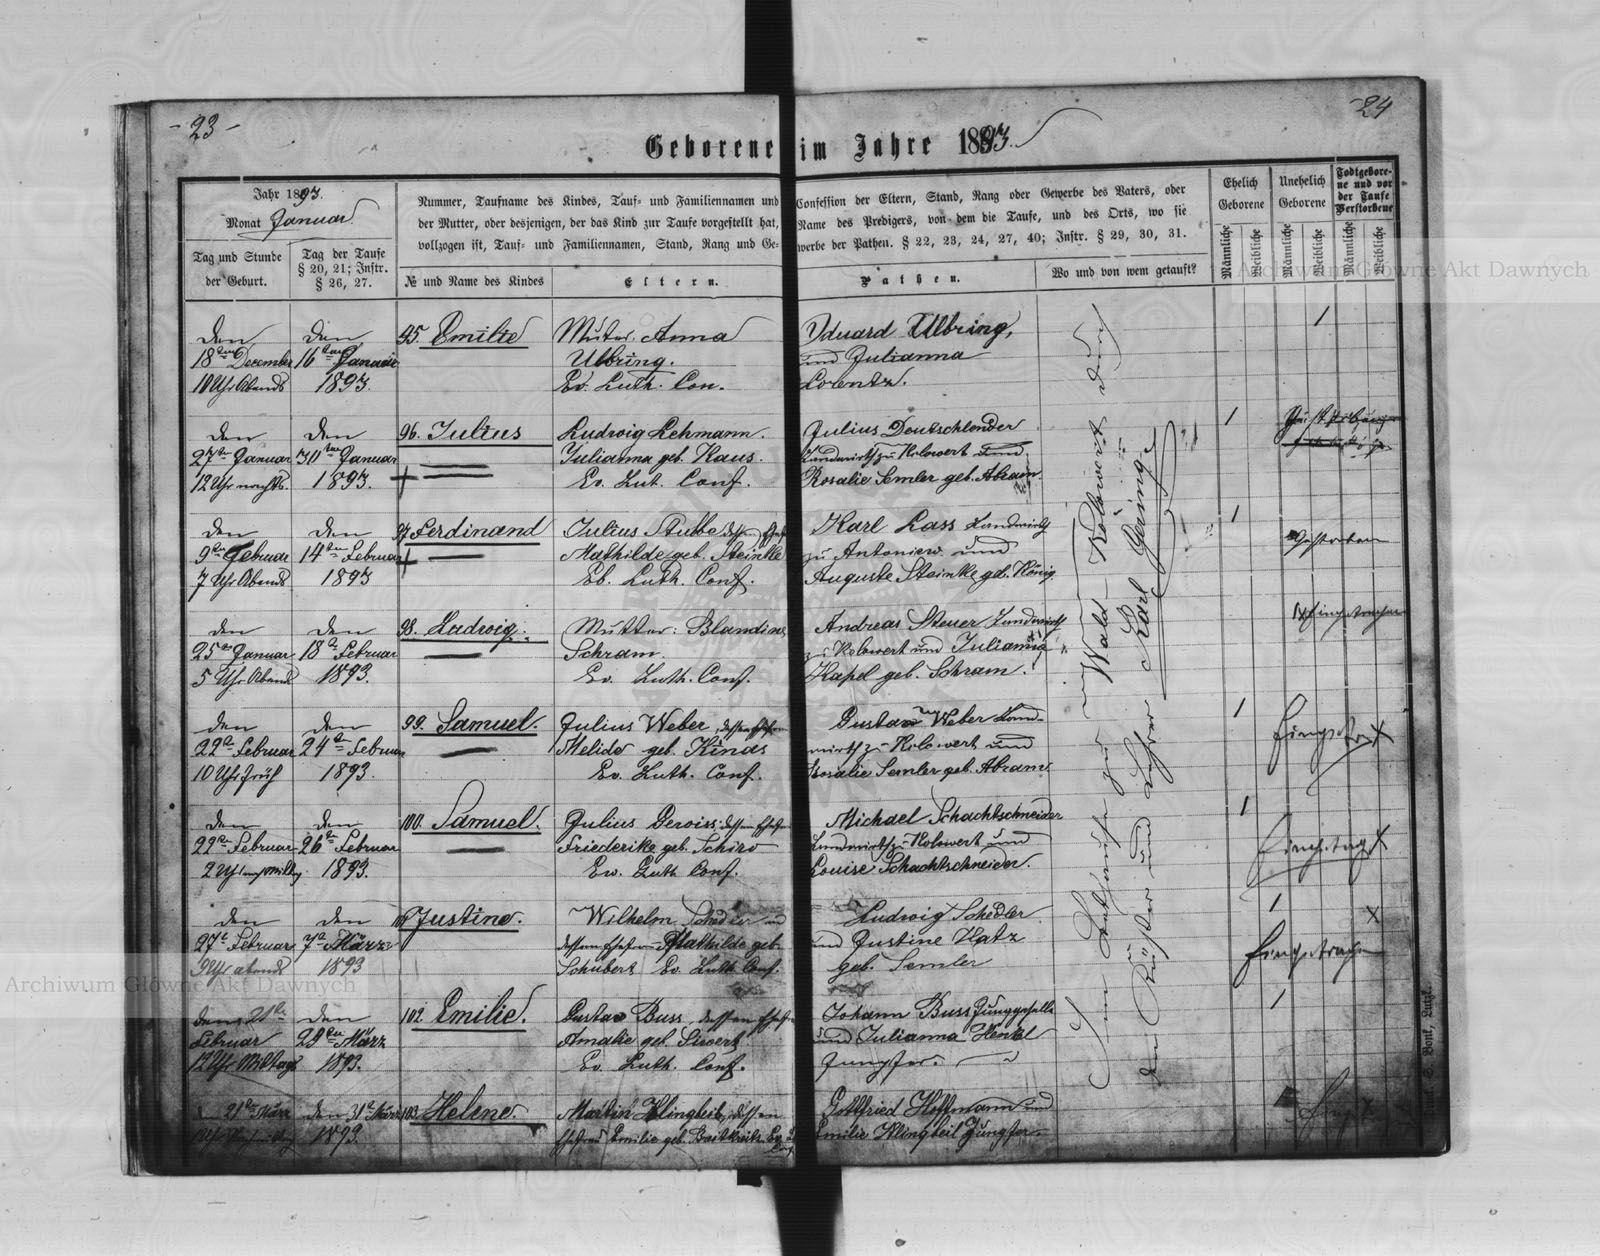 - 23 -
24
Geborene im Jahre 1893.
Jahr 1893.
Monat Januar.
Tag und Stunde
der Geburt.
Tag der Taufe
§ 20, 21; Instr.
§ 26, 27.
Nummer, Taufname des Kindes, Tauf- und Familiennamen und
der Mutter, oder desjenigen, der das Kind zur Taufe vorgestellt hat,
vollzogen ist, Tauf- und Familiennamen, Stand, Rang und Ge-
№ und Name des Kindes
Eltern.
Confession der Eltern, Stand, Rang oder Gewerbe des Vaters, oder
Name des Predigers, von dem die Taufe, und des Orts, wo sie
werbe der Pathen. § 22, 23, 24, 27, 40; Instr. § 29, 30, 31.
Pathen.
Wo und von wem getauft?
Ehelich
Geborene
Unehelich
Geborene
Todtgebore-
ne und vor
der Taufe
Verstorbene
Männliche
Weibliche
Männliche
Weibliche
Männliche
Weibliche
den
18ten December
10 Uhr Abends
den
16ten Januar
1893.
95. Emilie
Muter: Anna
Ulbring.
Ev. Luth. Con.
Eduard Ulbring,
und Julianna
Lorentz.
1
den
27ten Januar
12 Uhr nachts.
den
30ten Januar
1893.
96. Julius
Ludwig Lehmann.
Julianna geb. Kaus.
Ev. Lut. Conf.
Julius Deutschlender
Landwirth zu Kolowert und
Rosalie Semler geb. Abram.
1
den
9ten Februar
7 Uhr Abends
den
14ten Februar
1893
97. Ferdinand
Julius Stubbe dessen Ehefr
Mathilde geb. Steinke
Ev. Luth. Conf.
Karl Lass Landwirth
zu Antoniew. und
Auguste Steinke geb. König
1
Gestorben
den
25ten Januar
5 Uhr Abend
den
18ten Februar
1893.
98. Ludwig.
Mutter: Blandine
Schram.
Ev. Luth. Conf.
Andreas Steuer Landwirth
zu Kolowert und Julianna
Kapel geb. Schram.
Eingetragen
den
22ten Februar
10 Uhr Früh
den
24ten Februar
1893.
99. Samuel.
Julius Weber, dessen Ehefr
Melide geb. Kinas
Ev. Luth. Conf.
Gustav Weber Land-
wirth zu Kolowert und
Rosalie Semler geb. Abram
1
den
22ten Februar
den
26ten Februar
1893.
100. Samuel.
Julius Gerwiss. dessen Ehefr
Friederike geb. Schiro
Ev. Luth. Conf.
Michael Schachtschneider
Landwirth zu Kolowert und
Louise Schachtschneider.
1
den
27t Februar
9 Uhr abends
den
7ten März
1893
101 Justine.
Wilhelm Schedler und
dessen Ehefrau Mathilde geb.
Schubert Ev. Luth. Conf.
Ludwig Schedler
und Justine Hatz
geb. Semler
1
Eingetragen
den 21ten
Februar
12 Uhr Mittags
den
29ten März
1893.
102. Emilie.
Gustav Buss, dessen Ehefr
Amalie geb. Siewert
Ev. Luth. Conf.
Johann Buss Junggeselle
und Julianna Henkel
Jungfer.
1
21ten März
den 31ten März
1893.
103. Helene.
Martin Klingbeil, dessen
Ehefrau Emilie geb. Breitkreitz Ev. L.
Conf.
Gottfried Hoffmann und
Emilie Klingbeil Jungfer.
Im Bethause zu Wald Kolowert durch
den Küster und Lehrer Karl Geringe
Archiwum Główne Akt Dawnych
Archiwum Główne Akt Dawnych